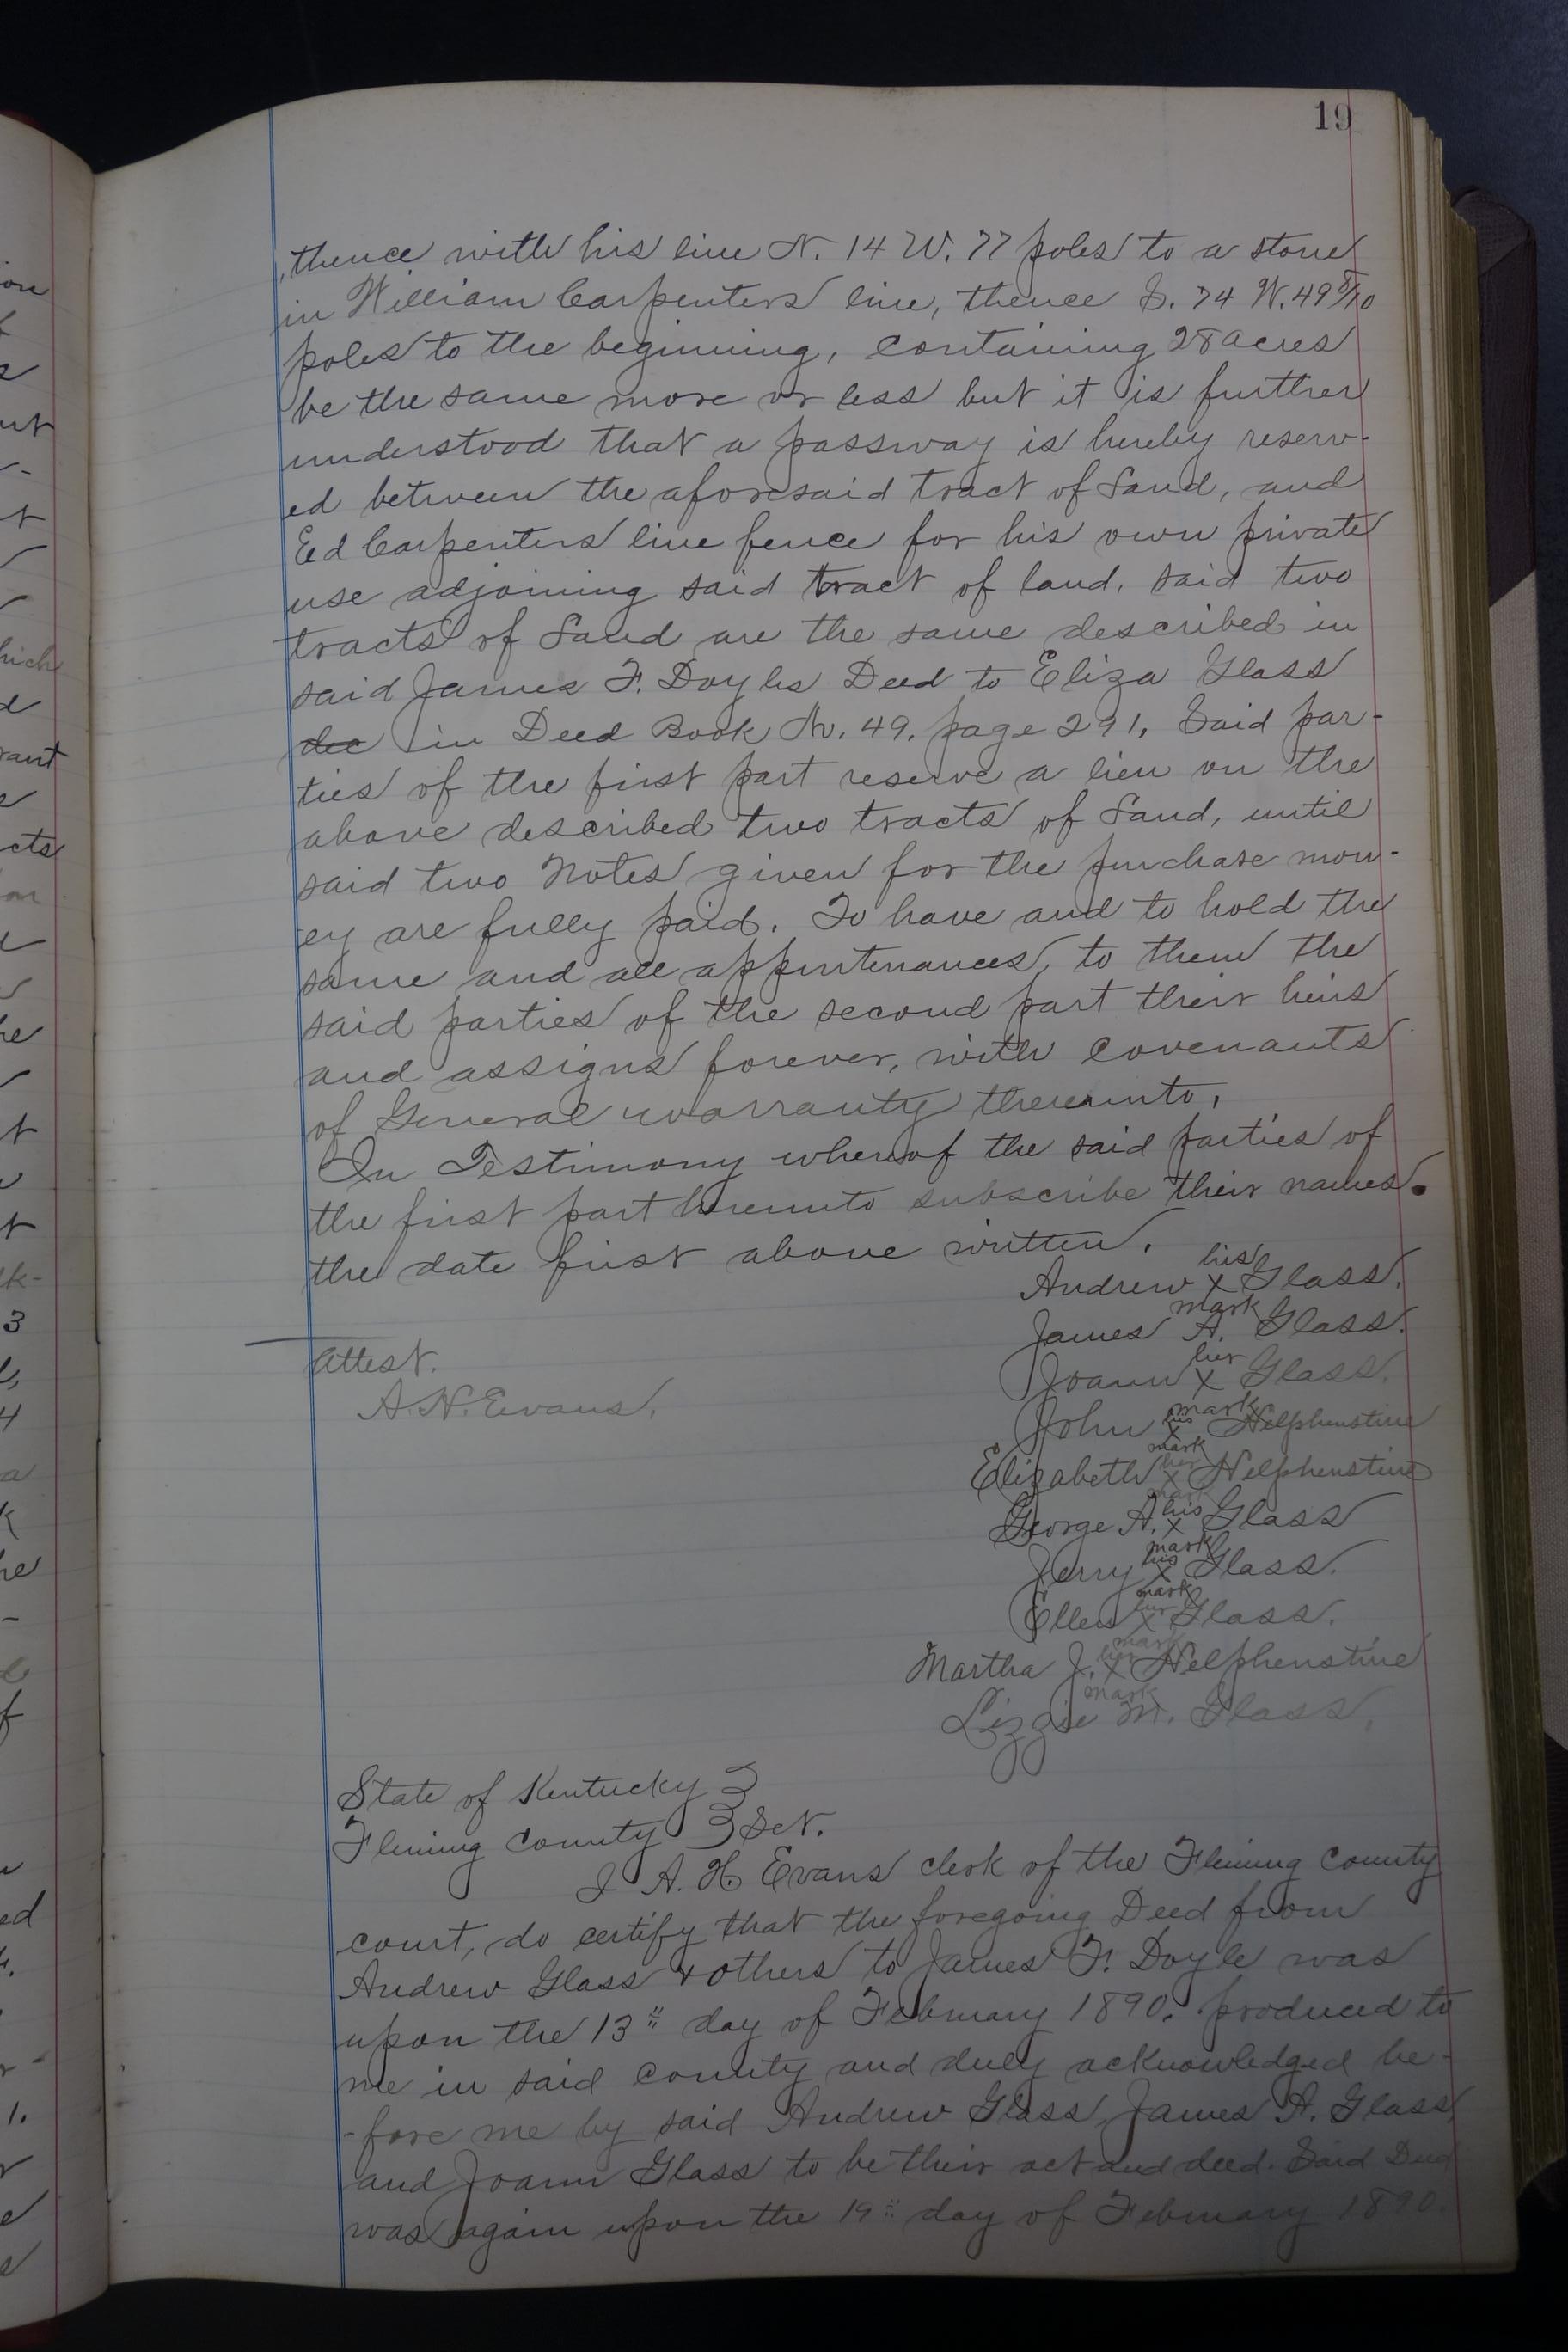 19
thence with his line N. 14 W. 77 poles to a stone
in William Carpenters line, thence S. 74 W. 49 5/10
poles to the beginning, containing 28 acres
be the same more or less but it is further
understood that a passway is hereby reserv-
ed between the aforesaid tract of Land, and
Ed Carpenters line fence for his own private
use adjoining said tract of land, said two
tracts of Land are the same described in
said James F. Doyles Deed to Eliza Glass
dec in Deed Book No. 49. page 291. Said par-
ties of the first part reserve a lien on the
above described two tracts of Land, until
said two Notes given for the purchase mon-
ey are fully paid. To have and to hold the
same and all appurtenances, to them the
said parties of the second part their heirs
and assigns forever, with covenants
of General warranty thereunto,
In Testimony whereof the said parties of
the first part hereunto subscribe their names.
the date first above written.
Andrew his X mark Glass.
James A. Glass.
Attest.
Joann her X mark Glass.
A. H. Evans.
John his X mark Helphenstine
Elizabeth her X mark Helphenstine
George A. his X mark Glass
Jerry his X mark Glass.
Ellen her X mark Glass.
Martha J. her X mark Helphenstine
Lizzie M. Glass.
State of Kentucky }
Fleming County } Sct.
I A. H Evans clerk of the Fleming County
court, do certify that the foregoing Deed from
Andrew Glass & others to James F. Doyle was
upon the 13" day of February 1890. produced to
me in said County and duly acknowledged be-
-fore me by said Andrew Glass, James A. Glass,
and Joann Glass to be their act and deed. Said Deed
was again upon the 19" day of February 1890.